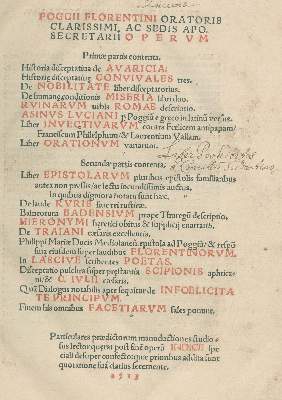 POGGII FLORENTINI ORATORIS
CLARISSIMI, AC SEDIS APO.
SECRETARII OPERVM
Primæ partis contenta.
Historia disceptatiua de AVARICIA.
Historiæ disceptatiuæ CONVIVALES tres.
De NOBILITATE liber disceptatorius.
De humanæ conditionis MISERIA libri duo.
RVINARVM urbis ROMAE descriptio.
ASINVS LVCIANI per Poggiū e græco in latinū versus.
Liber INVECTIVARVM contra Fœlicem antipapam/
Franciscum Philelphum/ & Laurentium Vallam.
Liber ORATIONVM variarum.
Secundæ partis contenta.
Liber EPISTOLARVM pluribus epistolis familiaribus
antea non pressis/ac lectu iucundissimis auctus,
in quibus digniora notatu sunt hæc.
De laude RVRIS
Balneorum BADENSIVM prope Thuregū descriptio,
HIERONYMI hæretici obitus & supplicij enarratio.
De TRAIANI cæsaris excellentia.
Philippi Mariæ Ducis Mediolanēsiū epistola ad Poggiū/ & respō
siua eiusdem super laudibus FLORENTINORVM.
In LASCIVE scribentes POETAS.
Disceptatio pulchra super præstantia SCIPIONIS aphrica
ni/& C. IVLII cæsaris.
Quæ Dialogus notabilis apte sequitur de INFOELICITA
TE PRINCIPVM.
Finem facit omnibus FACETIARVM
Particulares prædictorum
sus lector
1513